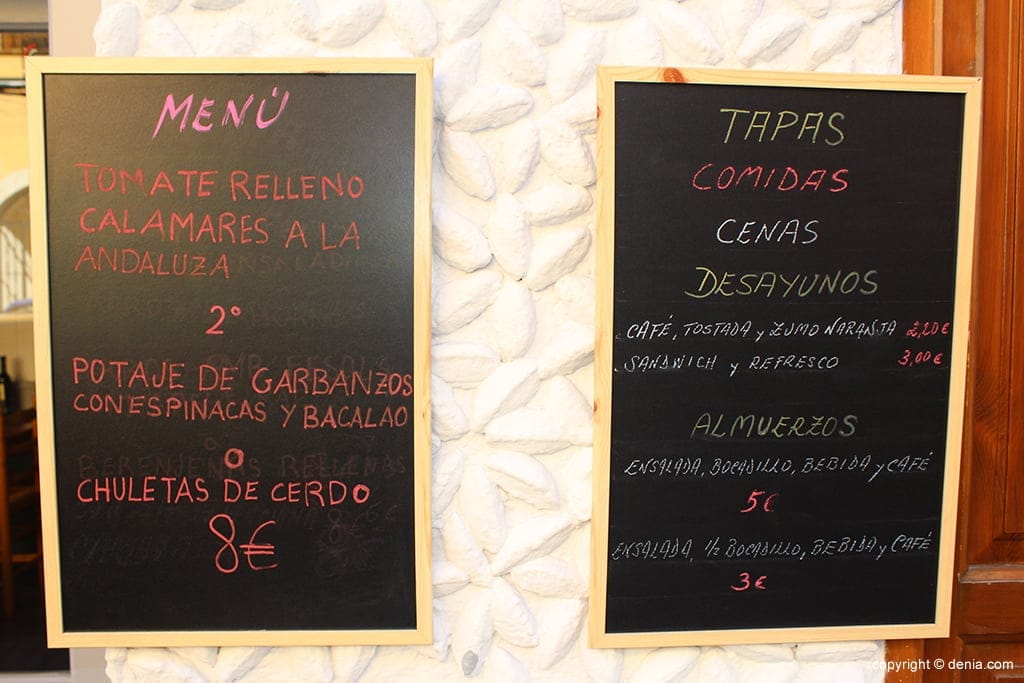 MENÚ
TOMATE RELLENO
CALAMARES A LA
ANDALUZA
2º
POTAJE DE GARBANZOS
CON ESPINACAS Y BACALAO
O
BERENJENAS RELLENAS
CHULETAS DE CERDO
8€
TAPAS
COMIDAS
CENAS
DESAYUNOS
CAFÉ, TOSTADA y ZUMO NARANJA 2,20€
SANDWICH y REFRESCO 3,00€
ALMUERZOS
ENSALADA, BOCADILLO, BEBIDA y CAFÉ
5€
ENSALADA, 1/2 BOCADILLO, BEBIDA y CAFÉ
3€
copyright © denia.com